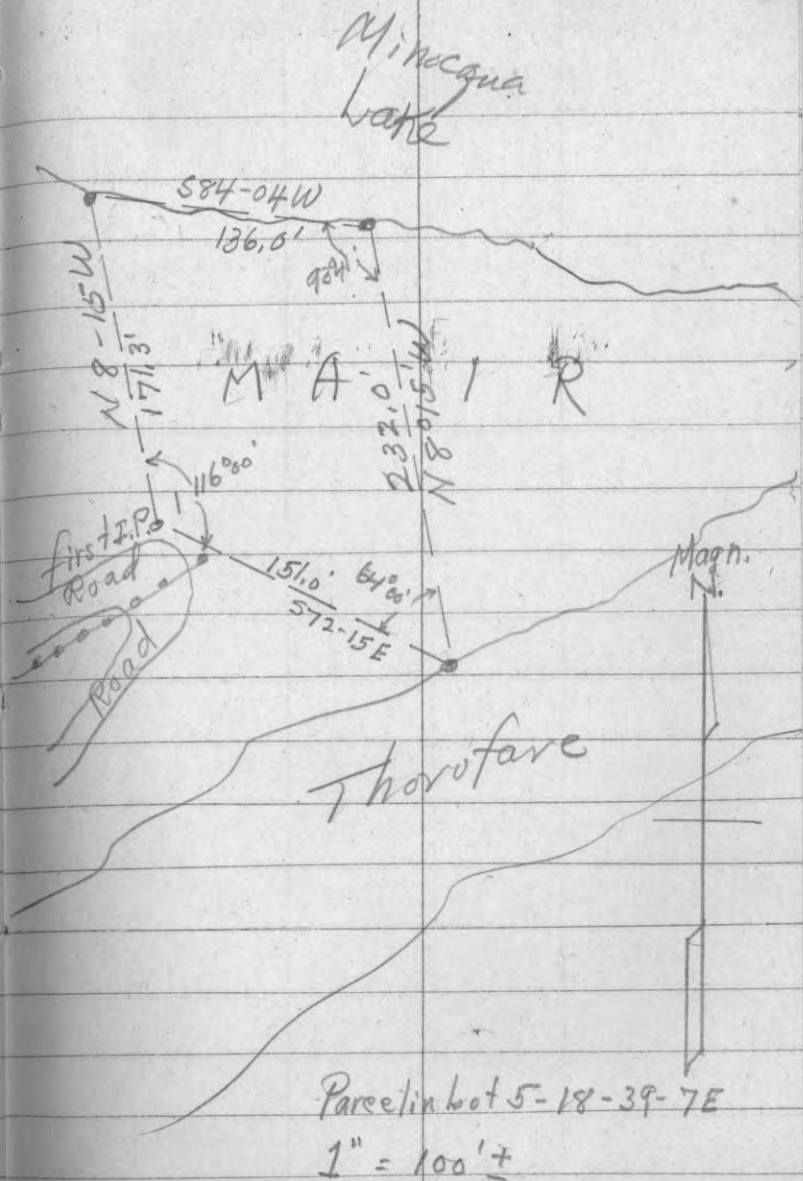 Minocqua
Lake
S84-04W
136.0'
N 8-15W
171.3'
M A I R
232.0'
N 8°15'W
116°00'
First I.P.
Road
Road
151.0'
S72-15E
64°00'
Magn.
N.
Thorofare
Parcel in Lot 5-18-39-7E
1" = 100'±